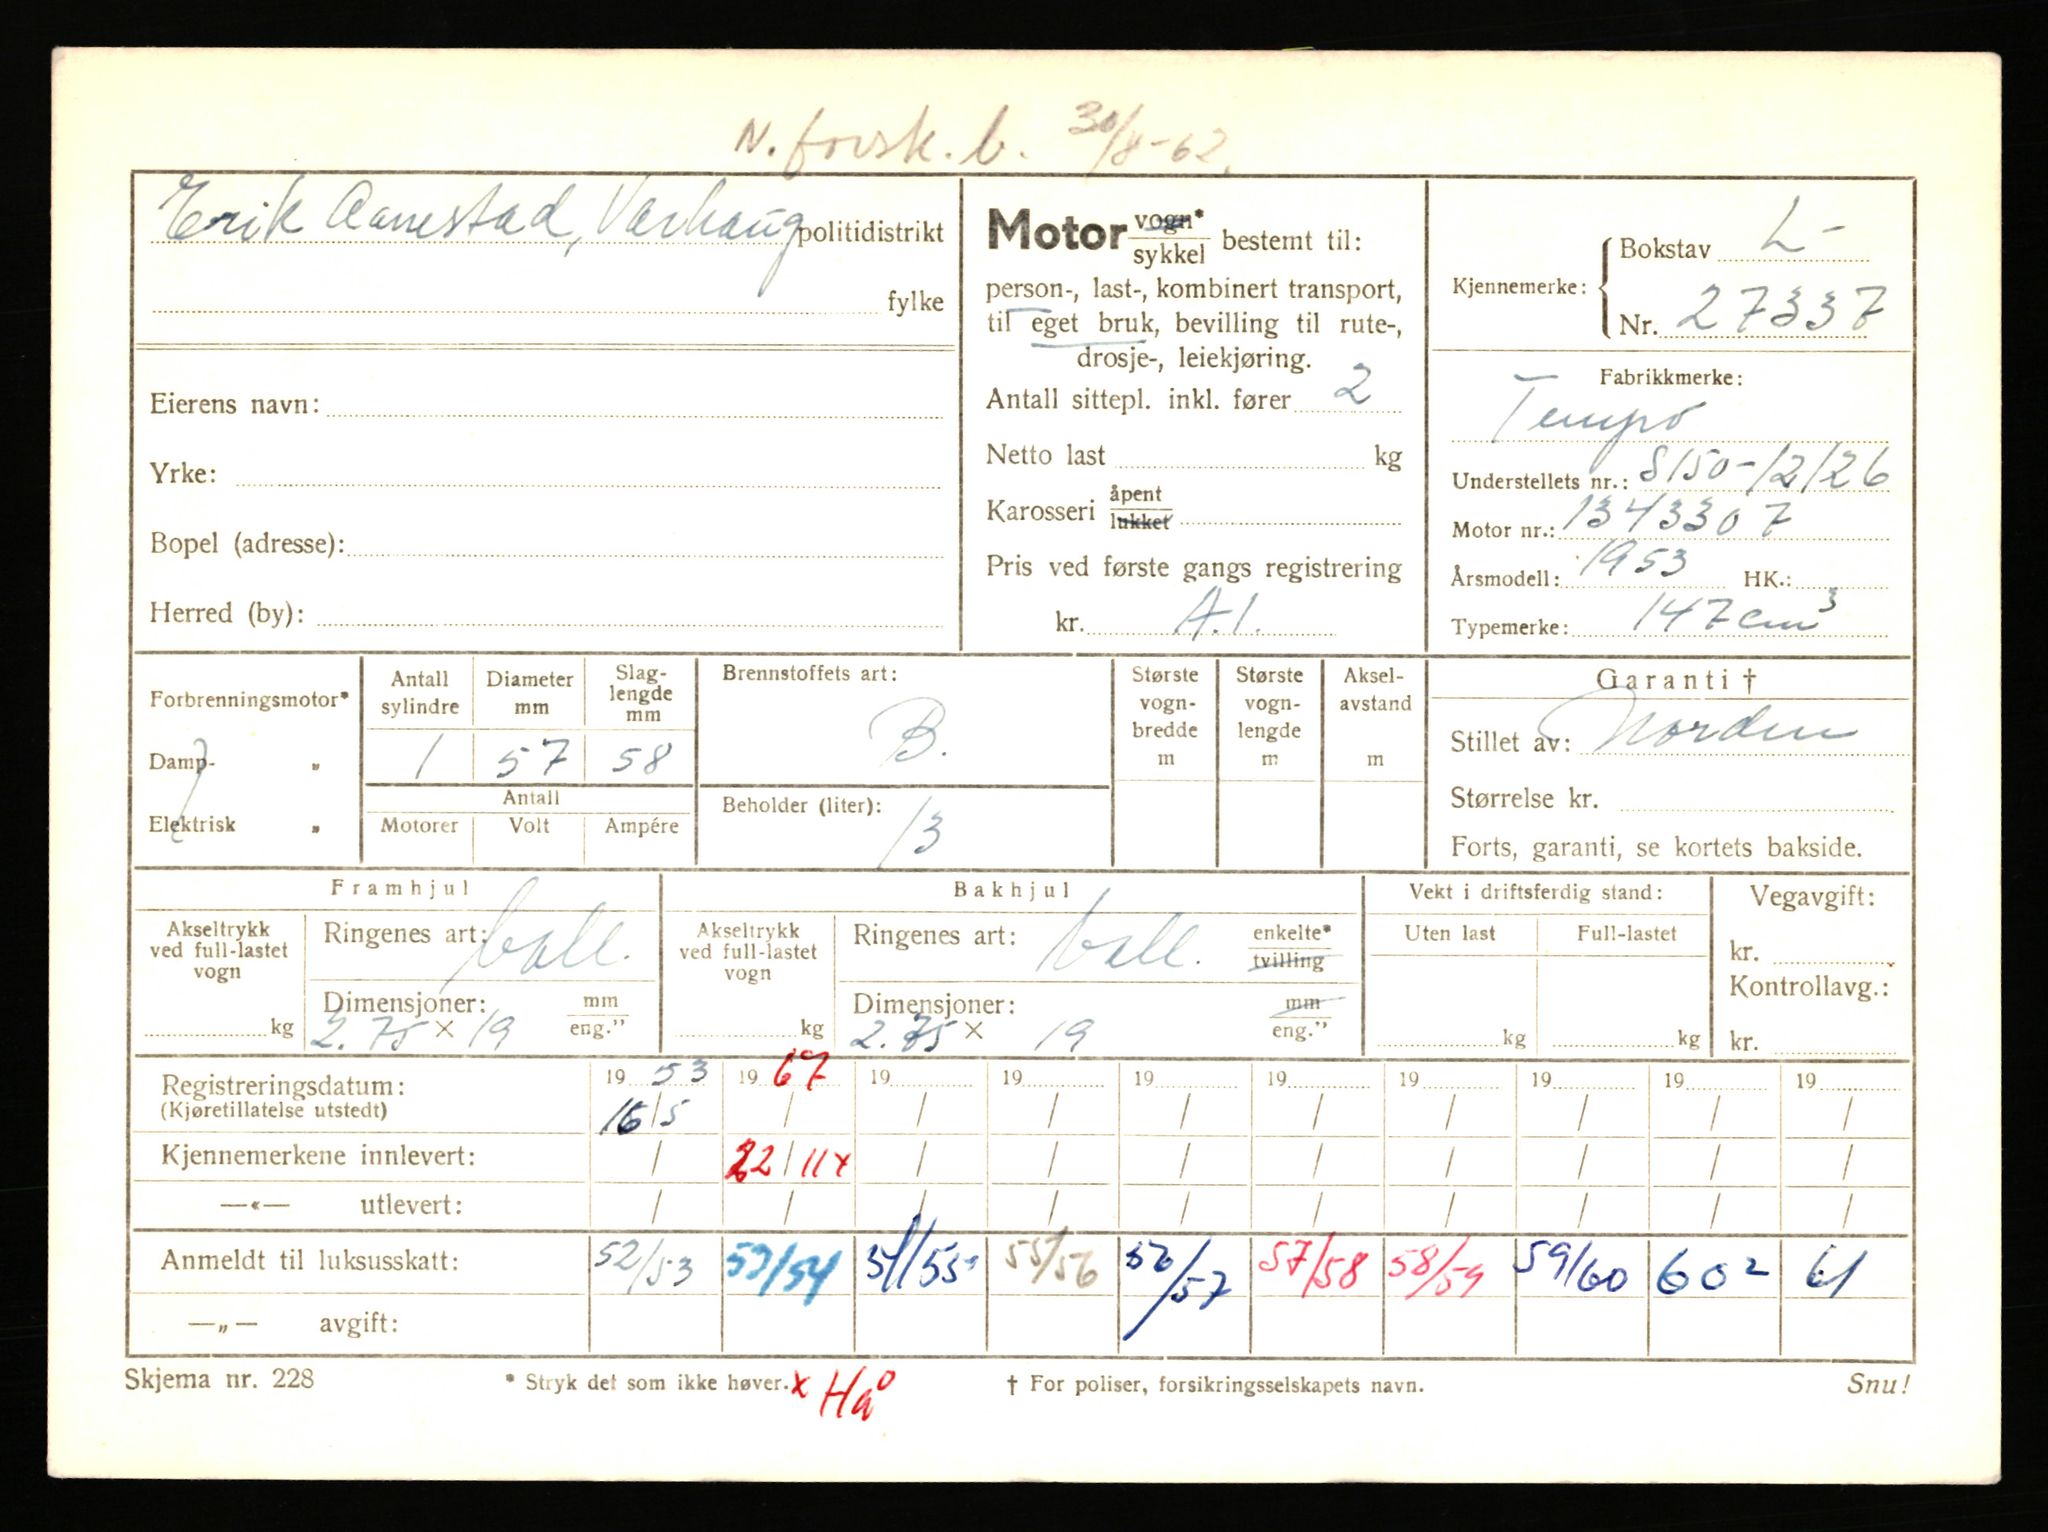 N. forsk. b. 30/8-62.
Erik Aanestad, Varhaug politidistrikt
fylke
Eierens navn:
Yrke:
Bopel (adresse):
Herred (by):
Motor vogn* / sykkel bestemt til:
person-, last-, kombinert transport,
til eget bruk, bevilling til rute-,
drosje-, leiekjøring.
Antall sittepl. inkl. fører 2
Netto last kg
Karosseri åpent / lukket
Pris ved første gangs registrering
kr. A.1.
Kjennemerke: Bokstav L-
Nr. 27337
Fabrikkmerke:
Tempo
Understellets nr.: S150-12126
Motor nr.: 1343307
Årsmodell: 1953 HK.:
Typemerke: 147 cm³
Forbrenningsmotor*
Damp- „
Elektrisk „
Antall sylindre Diameter mm Slag-lengde mm
1 57 58
Antall
Motorer Volt Ampére
Brennstoffets art:
B.
Beholder (liter):
13
Største vogn-bredde m
Største vogn-lengde m
Aksel-avstand m
Garanti †
Stillet av: Norden
Størrelse kr.
Forts, garanti, se kortets bakside.
Framhjul
Akseltrykk ved full-lastet vogn
kg
Ringenes art: ball.
Dimensjoner: mm / eng."
2.75 × 19
Bakhjul
Akseltrykk ved full-lastet vogn
kg
Ringenes art: ball. enkelte* / tvilling
Dimensjoner: mm / eng."
2.75 × 19
Vekt i driftsferdig stand:
Uten last Full-lastet
kg kg
Vegavgift:
kr.
Kontrollavg.:
kr.
Registreringsdatum: 19 53 19 67 19 19 19 19 19 19 19 19
(Kjøretillatelse utstedt) 16/5 / / / / / / / / /
Kjennemerkene innlevert: / 22/11 x / / / / / / / /
—«— utlevert: / / / / / / / / / /
Anmeldt til luksusskatt: 52/53 53/54 54/55 55/56 56/57 57/58 58/59 59/60 60² 61
—„— avgift:
Skjema nr. 228 * Stryk det som ikke høver. x Hå † For poliser, forsikringsselskapets navn. Snu!